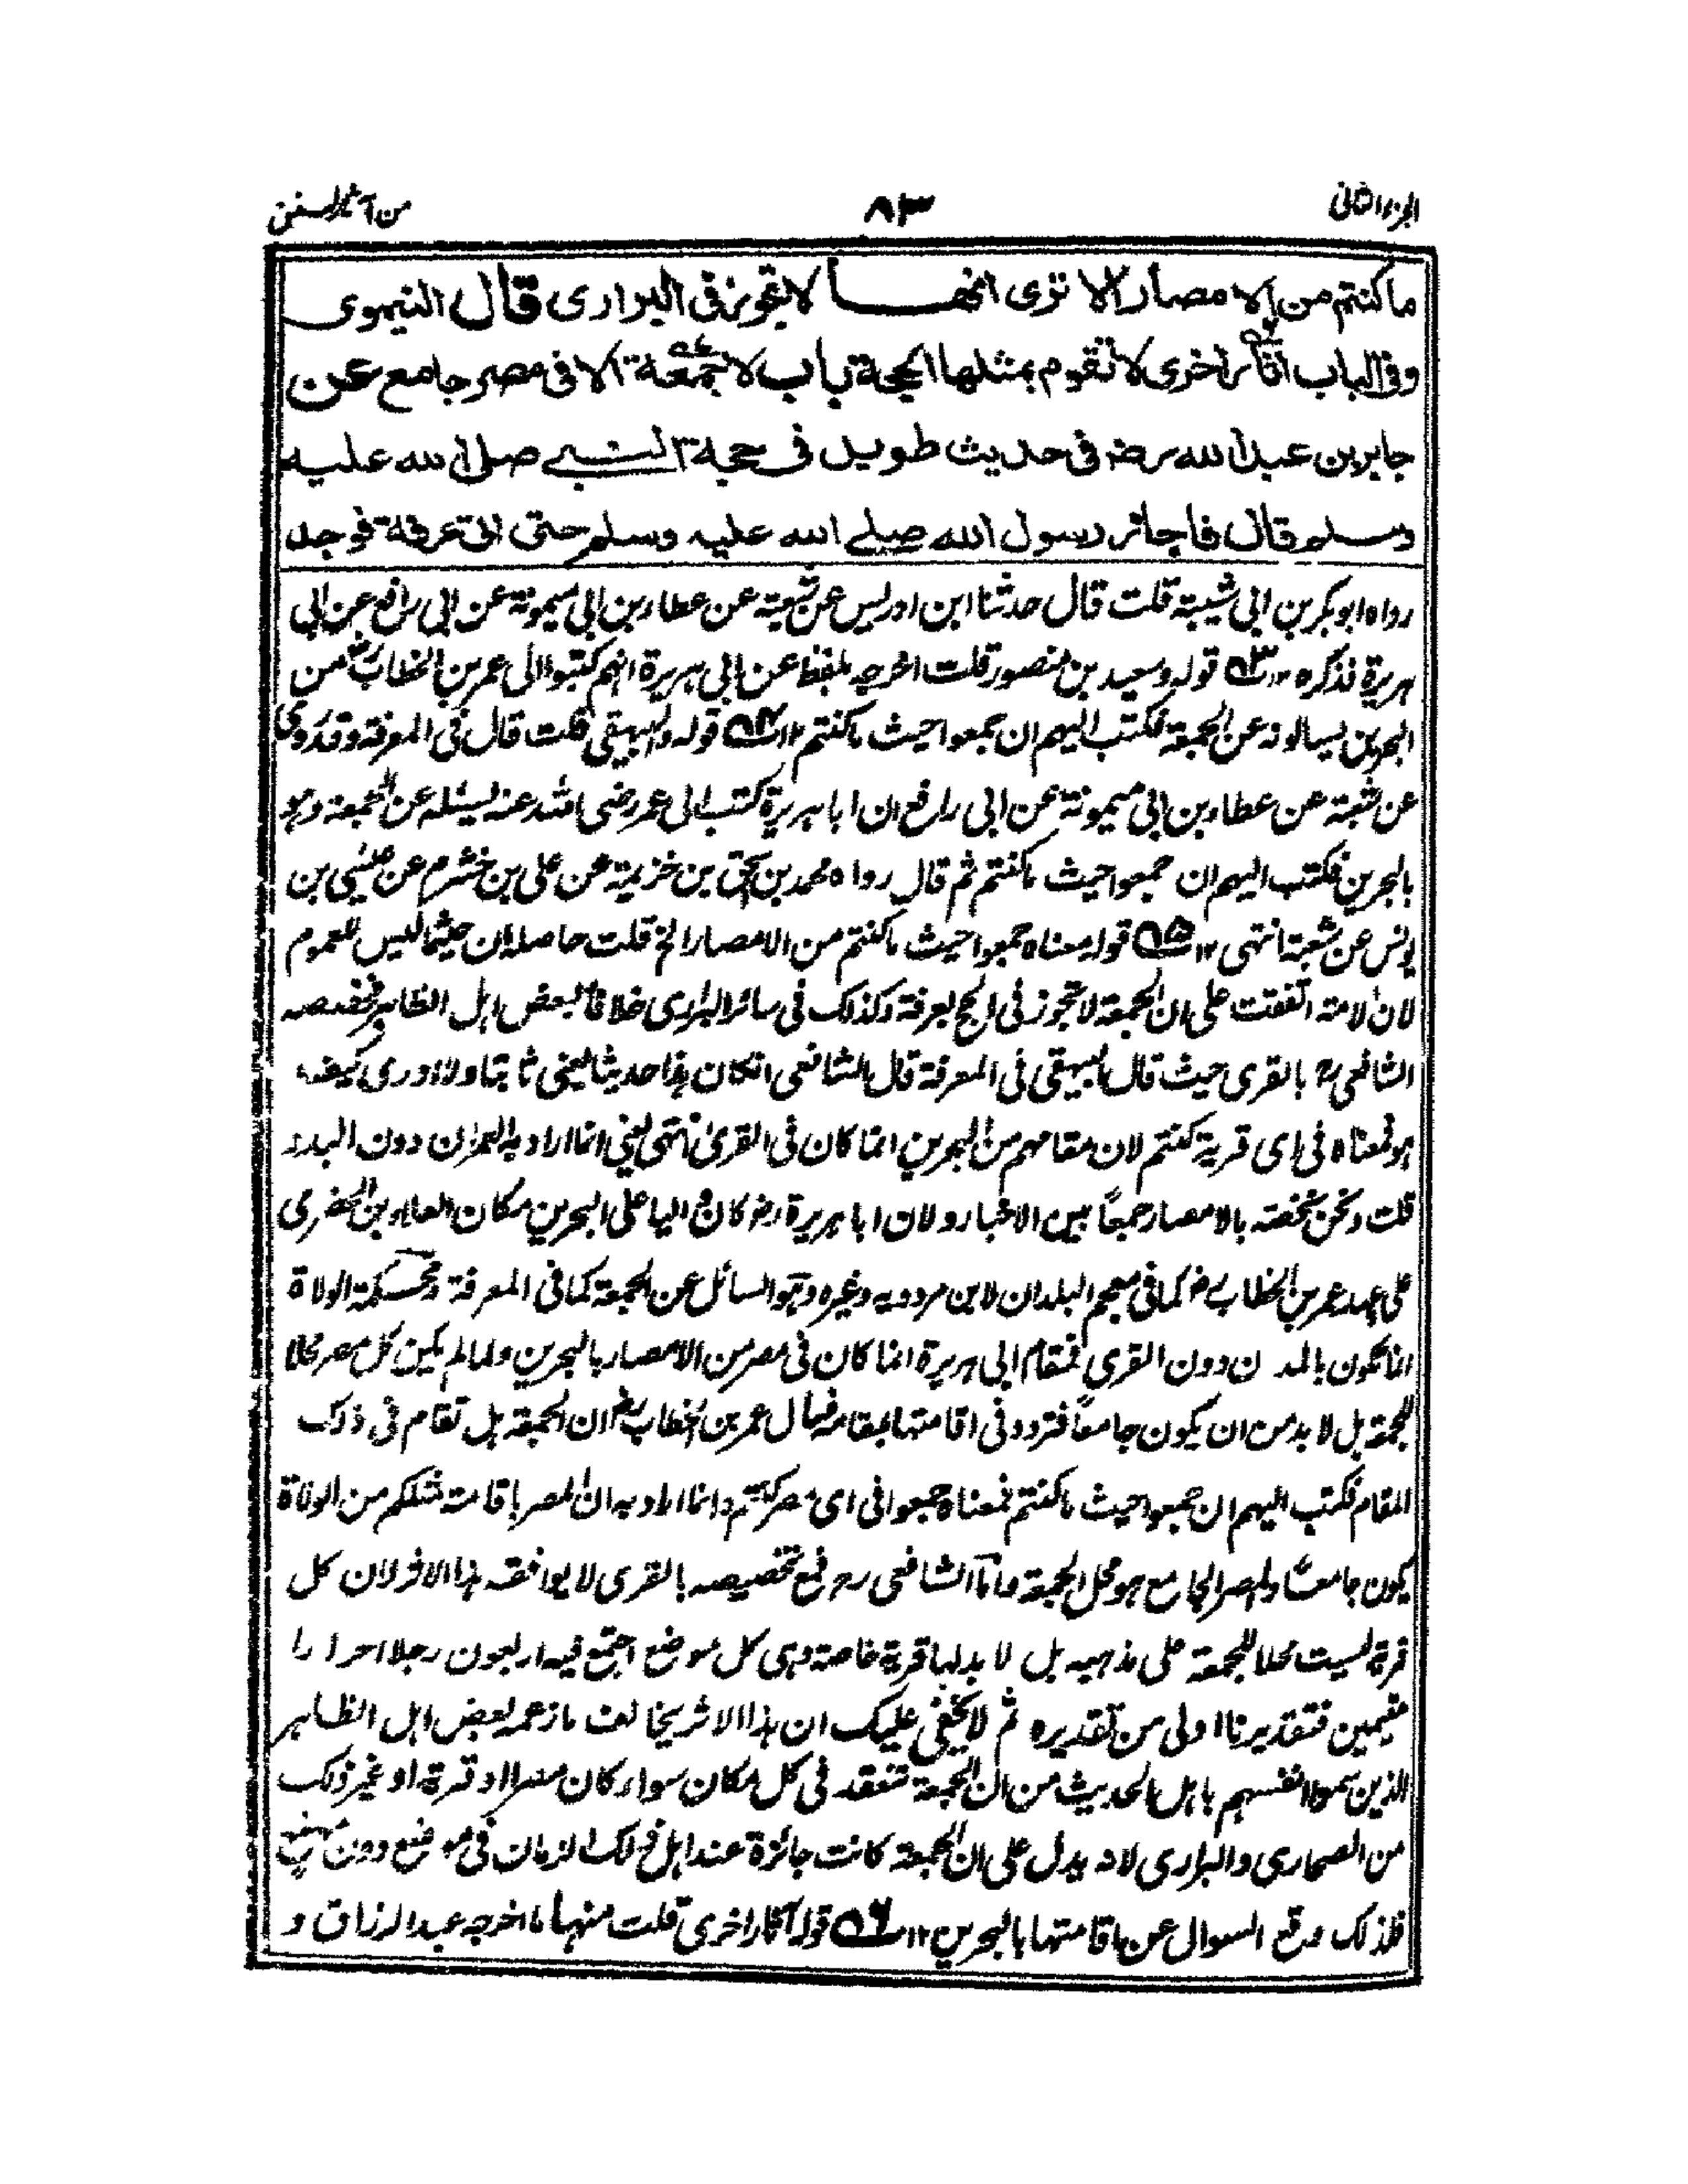 الجزء الثاني
٨٣
من آثار السنن
ما كنتم من الامصار الا ترى انهـــا لا تجوز فى البرارى قال النيموى
وفى الباب آثار اخرى لا تقوم بمثلها الحجة باب لا جمعة الا فى مصر جامع عن
جابر بن عبد الله رضـ فى حديث طويل فى حجة النبــي صلى الله عليه
وسلم قال فاجاز رسول الله صلى الله عليه وسلم حتى اتى عرفة فوجد
رواه ابو بكر بن ابى شيبة قلت قال حدثنا ابن ادريس عن شعبة عن عطاء بن ابى ميمونة عن ابى رافع عن ابى
هريرة فذكره ١٢ ٥٣ قوله وسعيد بن منصور قلت اخرجه بلفظ عن ابى هريرة انهم كتبوا الى عمر بن الخطاب رضـ من
البحرين يسالونه عن الجمعة فكتب اليهم ان جمعوا حيث ما كنتم ١٢ ٥٤ قوله والبيهقى قلت قال فى المعرفة وقد روى
عن شعبة عن عطاء بن ابى ميمونة عن ابى رافع ان ابا هريرة كتب الى عمر رضى الله عنه يسئله عن الجمعة وهو
بالبحرين فكتب اليهم ان جمعوا حيث ما كنتم ثم قال رواه محمد بن اسحق بن خزيمة عن على بن خشرم عن عيسٰى بن
يونس عن شعبة انتهى ١٢ ٥٥ قوله معناه جمعوا حيث ما كنتم من الامصار الخ قلت حاصله ان حيثما ليس للعموم
لان الامة اتفقت على ان الجمعة لا تجوز فى الحج بعرفة وكذلك فى سائر البرارى خلافاً لبعض اهل الظاهر فخصصه
الشافعى رح بالقرى حيث قال البيهقى فى المعرفة قال الشافعى ان كان هذا حديثا يعنى ثابتا ولا ادرى كيف
هو فمعناه فى اى قرية كنتم لان مقامهم من البحرين انما كان فى القرىٰ انتهى يعني انما اراد به العمران دون البدو
قلت ونحن نخصه بالامصار جمعاً بين الاخبار ولان ابا هريرة رضـ كان واليا على البحرين مكان العلاء بن الحضرمى
على عهد عمر بن الخطاب رضـ كما فى معجم البلدان لابن مردويه وغيره وهو السائل عن الجمعة كما فى المعرفة ومحكمة الولاة
انما تكون بالمدن دون القرى فمقام ابى هريرة انما كان فى مصر من الامصار بالبحرين ولما لم يكن كل مصر محلا
للجمعة بل لا بد من ان يكون جامعاً فتردد فى اقامتها بمقامه فسال عمر بن الخطاب رضـ ان الجمعة هل تقام فى ذلك
المقام فكتب اليهم ان جمعوا حيث ما كنتم فمعناه جمعوا فى اى مصر كنتم وانما اراد به ان المصر باقامة مثلكم من الولاة
يكون جامعاً والمصر الجامع هو محل الجمعة واما الشافعى رح فمع تخصيصه بالقرى لا يوافقه هذا الاثر لان كل
قرية ليست محلا للجمعة على مذهبه بل لا بد لها قرية خاصة وهى كل موضع اجتمع فيه اربعون رجلا احرارا
مقيمين فتقديرنا اولى من تقديره ثم لا يخفى عليك ان هذا الاثر يخالف ما زعمه بعض اهل الظاهر
الذين سموا انفسهم باهل الحديث من ان الجمعة تنعقد فى كل مكان سواء كان مصرا او قرية او غير ذلك
من الصحارى والبرارى لانه يدل على ان الجمعة كانت جائزة عند اهل ذلك الزمان فى موضع دون موضع
فلذلك وقع السوال عن اقامتها بالبحرين ١٢ ٥٦ قوله آثار اخرى قلت منها ما اخرجه عبد الرزاق و